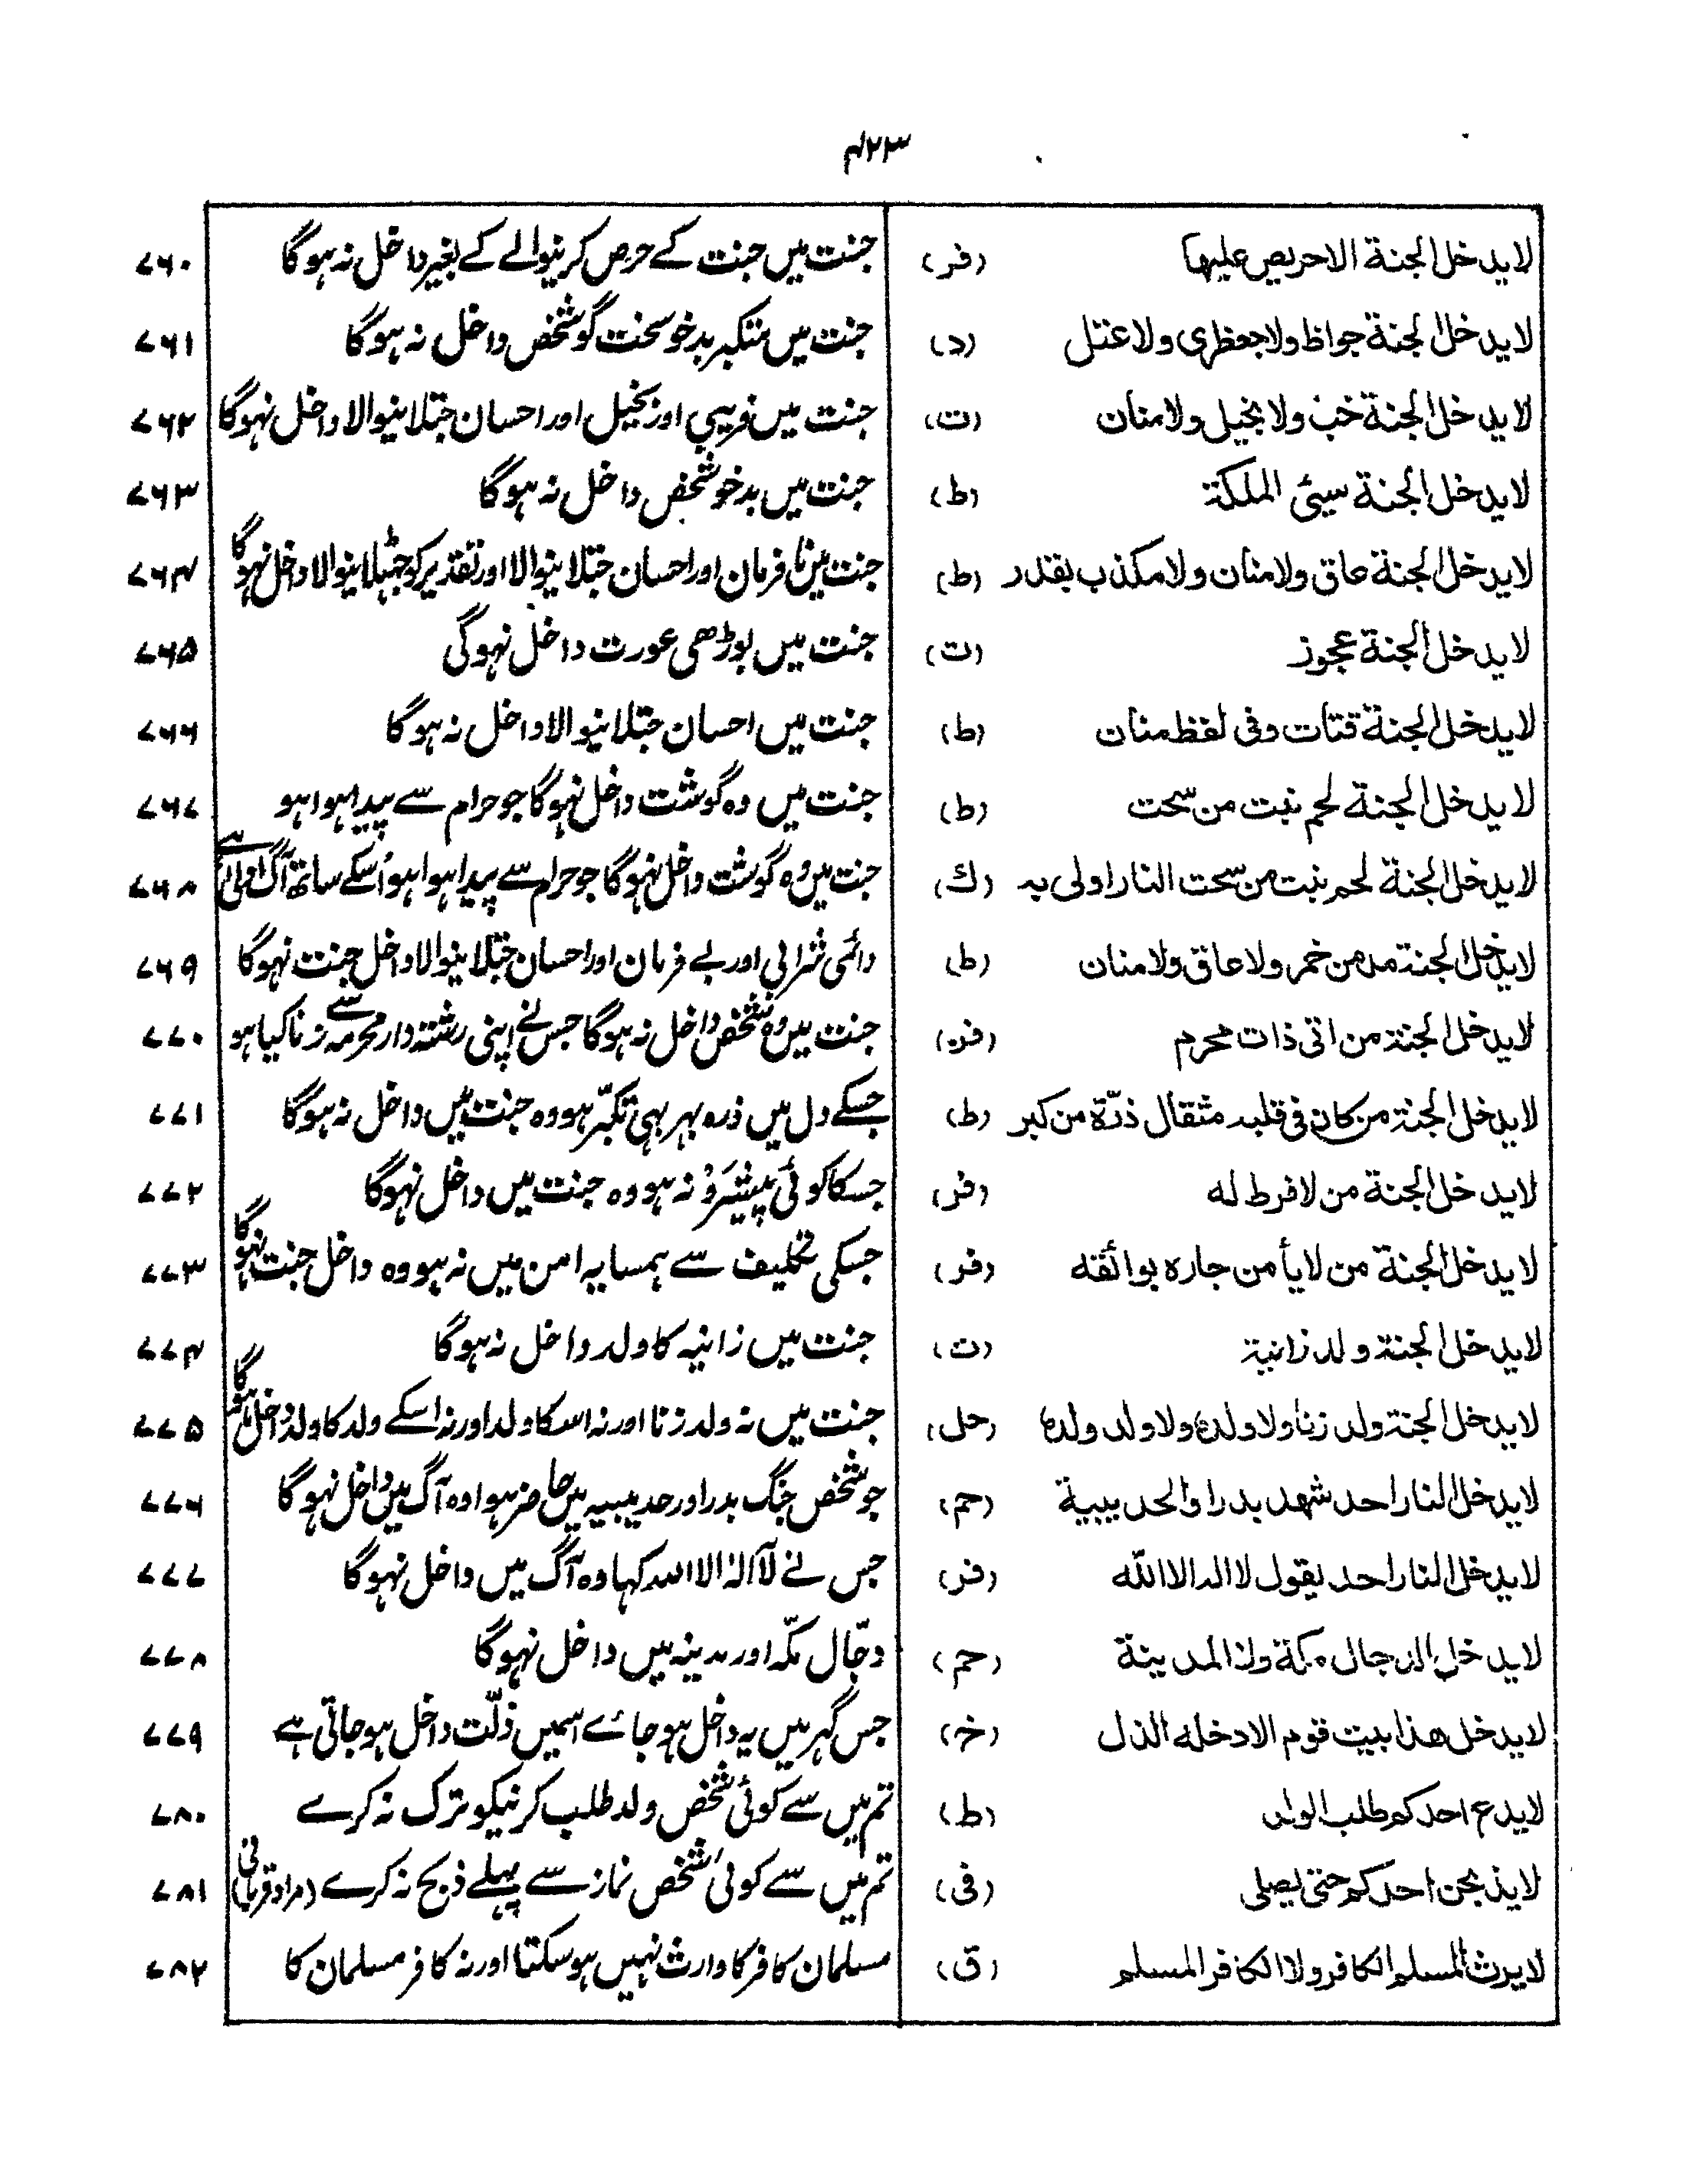 ۴۲۳
لا یدخل الجنة الا حریص علیها (فر) جنت میں جنت کے حرص کرنیوالے کے بغیر داخل نہ ہوگا ۷۶۰
لا یدخل الجنة جواظ ولا جعظری ولا عتل (د) جنت میں متکبر بدخو سخت گو شخص داخل نہ ہوگا ۷۶۱
لا یدخل الجنة خب ولا بخیل ولا منان (ت) جنت میں فریبی اور بخیل اور احسان جتلانیوالا داخل نہوگا ۷۶۲
لا یدخل الجنة سیئی الملکة (ط) جنت میں بدخو شخص داخل نہ ہوگا ۷۶۳
لا یدخل الجنة عاق ولا منان ولا مکذب بقدر (ط) جنت میں نافرمان اور احسان جتلانیوالا اور تقدیر کو جہٹلانیوالا داخل نہوگا ۷۶۴
لا یدخل الجنة عجوز (ت) جنت میں بوڑھی عورت داخل نہوگی ۷۶۵
لا یدخل الجنة قتات وفی لفظ منان (ط) جنت میں احسان جتلانیوالا داخل نہ ہوگا ۷۶۶
لا یدخل الجنة لحم نبت من سحت (ط) جنت میں وہ گوشت داخل نہوگا جو حرام سے پیدا ہوا ہو ۷۶۷
لا یدخل الجنة لحم نبت من سحت النار اولی به (ك) جنت میں وہ گوشت داخل نہوگا جو حرام سے پیدا ہوا ہو اُسکے ساتھ آگ اولیٰ ہے ۷۶۸
لا یدخل الجنة مدمن خمر ولا عاق ولا منان (ط) دائمی شرابی اور بے فرمان اور احسان جتلانیوالا داخل جنت نہوگا ۷۶۹
لا یدخل الجنة من اتی ذات محرم (فر) جنت میں وہ شخص داخل نہ ہوگا جس نے اپنی رشتہ دار محرمہ سے زنا کیا ہو ۷۷۰
لا یدخل الجنة من کان فی قلبه مثقال ذرّة من کبر (ط) جسکے دل میں ذرہ بہر بہی تکبّر ہو وہ جنت میں داخل نہ ہوگا ۷۷۱
لا یدخل الجنة من لا فرط له (فر) جسکا کوئی پیشَروْ نہ ہو وہ جنت میں داخل نہوگا ۷۷۲
لا یدخل الجنة من لا یأمن جاره بوائقه (فر) جسکی تکلیف سے ہمسایہ امن میں نہ ہو وہ داخل جنت نہوگا ۷۷۳
لا یدخل الجنة ولد زانیة (ت) جنت میں زانیہ کا ولد داخل نہ ہوگا ۷۷۴
لا یدخل الجنة ولد زنا ولا ولدہ ولا ولد ولدہ (حل) جنت میں نہ ولد زنا اور نہ اسکا ولد اور نہ اسکے ولد کا ولد داخل ہوگا ۷۷۵
لا یدخل النار احد شهد بدرا والحدیبیة (حم) جو شخص جنگ بدر اور حدیبیہ میں حاضر ہوا وہ آگ میں داخل نہوگا ۷۷۶
لا یدخل النار احد یقول لا اله الا الله (فر) جس نے لآ الٰہ الا اللہ کہا وہ آگ میں داخل نہوگا ۷۷۷
لا یدخل الدجال مکة ولا المدینة (حم) دجّال مکّہ اور مدینہ میں داخل نہوگا ۷۷۸
لا یدخل هذا بیت قوم الا دخله الذل (خ) جس گہر میں یہ داخل ہو جائے اسمیں ذلّت داخل ہو جاتی ہے ۷۷۹
لا یدع احدکم طلب الولد (ط) تم میں سے کوئی شخص ولد طلب کرنیکو ترک نہ کرے ۷۸۰
لا یذبحن احدکم حتی یصلی (فی) تم میں سے کوئی شخص نماز سے پہلے ذبح نہ کرے (مراد قربانی) ۷۸۱
لا یرث المسلم الکافر ولا الکافر المسلم (ق) مسلمان کافر کا وارث نہیں ہو سکتا اور نہ کافر مسلمان کا ۷۸۲